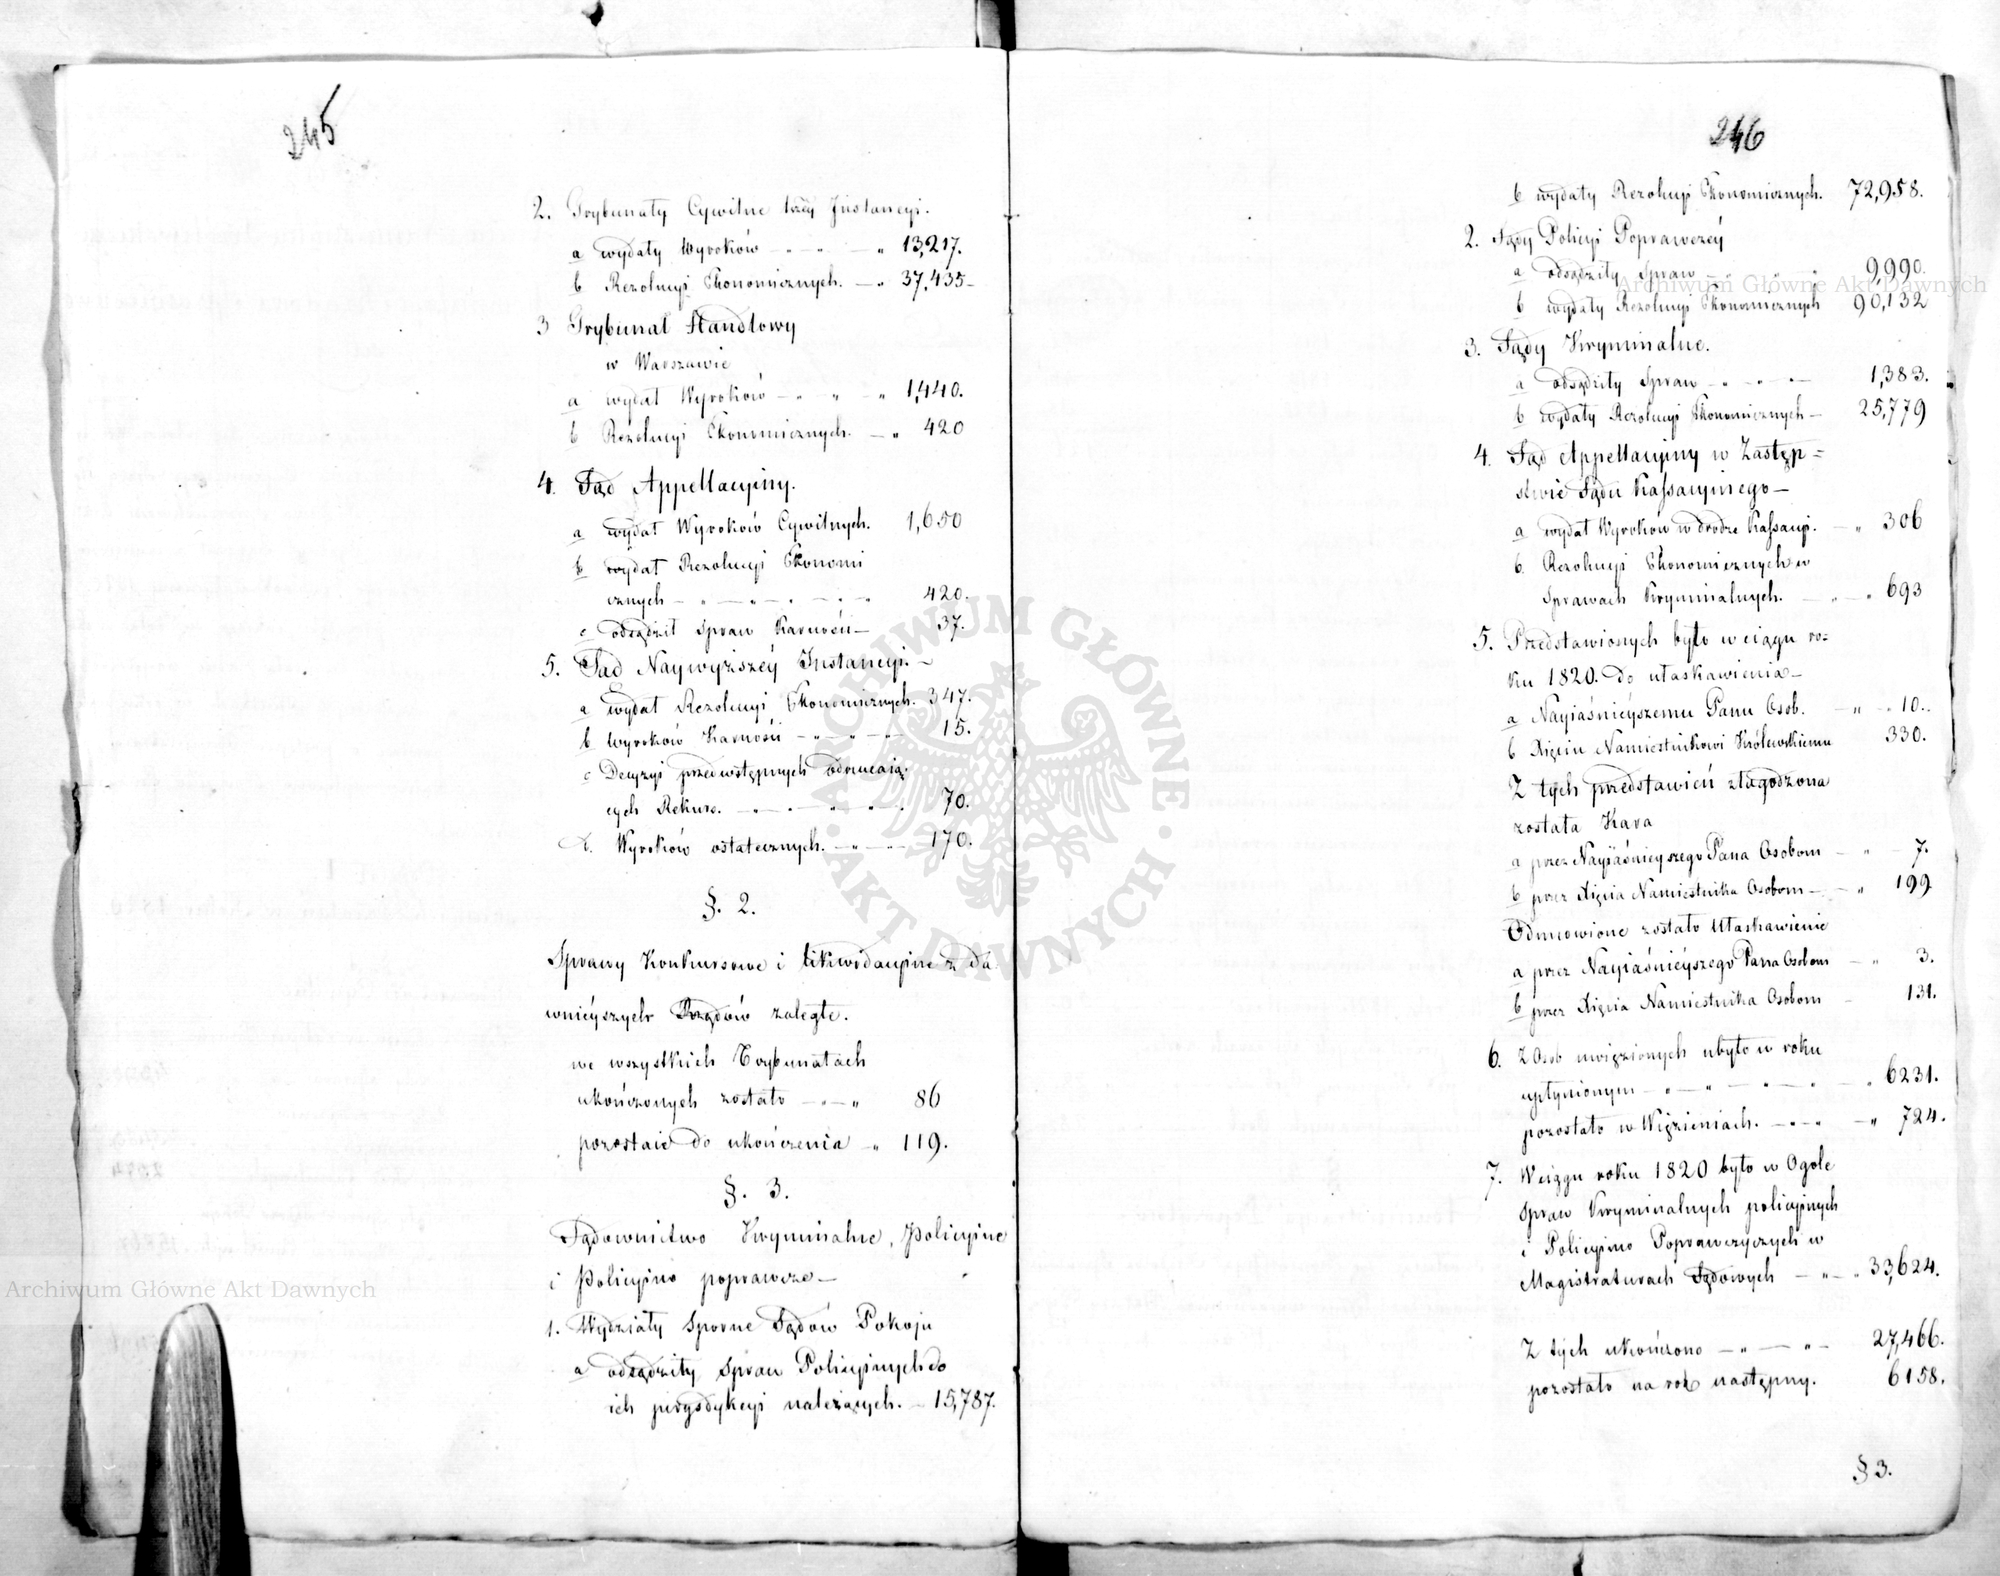 245
2. Trybunały Cywilne 1széy Instancyi.
a wydały Wyroków — " — " 13,217.
b Rezolucyi Ekonomicznych. — " 37,435 —
3 Trybunał Handlowy
w Warszawie
a wydał Wyroków — " — " — " 1,440.
b Rezolucyi Ekonomicznych. — " 420
4. Sąd Appellacyjny.
a wydał Wyroków Cywilnych. 1,650
b wydał Rezolucyi Ekonomi
cznych — " — " — " — " — " 420.
c odsądził Spraw Karności — 37.
5. Sąd Naywyższéy Instancyi. —
a wydał Rezolucyi Ekonomicznych. 347.
b Wyroków Karności — " — " — 15.
c Decyzyi przedwstępnych odrzucaią-
cych Rekurs. — " — " — " — " 70.
d. Wyroków ostatecznych. — " — " — 170.
§. 2.
Sprawy Konkursowe i likwidacyjne z da-
wnieyszych Rządów zaległe.
we wszystkich Trybunałach
ukończonych zostało — " — " 86
pozostaie do ukończenia — " 119.
§. 3.
Sądownictwo Kryminalne, Policyine
i Policyino poprawcze —
1. Wydziały Sporne Sądów Pokoju
a odsądziły Spraw Policyinych do
ich jurysdykcyi należących. — 15,787.
246
b wydały Rezolucyi Ekonomicznych. 72,958.
2. Sądy Policyi Poprawczéy
a odsądziły Spraw — " — " — " 9,990.
b wydały Rezolucyi Ekonomicznych 90,132
3. Sądy Kryminalne.
a odsądziły Spraw — " — " — " — 1,383.
b wydały Rezolucyi Ekonomicznych — 25,779
4. Sąd Appellacyjny w Zastęp=
stwie Sądu Kassacyinego —
a wydał Wyroków w drodze Kassacyi. — " 306
b. Rezolucyi Ekonomicznych w
Sprawach Kryminalnych. — " — " 693
5. Przedstawionych było w ciągu ro=
ku 1820. do ułaskawienia —
a Nayiaśnieyszemu Panu Osob. — " — " 10.
b Xięciu Namiestnikowi Królewskiemu 330.
Z tych przedstawień złagodzona
została Kara
a przez Nayiaśnieyszego Pana Osobom — " — 7.
b przez Xięcia Namiestnika Osobom — " 199
Odmówione zostało Ułaskawienie
a przez Nayiaśnieyszego Pana Osobom — " 3.
b przez Xięcia Namiestnika Osobom — 131.
6. Z Osob uwięzionych ubyło w roku
upłynionym — " — " — " — " — " 6231.
pozostało w Więzieniach. — " — " — " 724.
7. W ciągu roku 1820 było w Ogóle
Spraw Kryminalnych policyjnych
i Policyino Poprawczych w
Magistraturach Sądowych — " — " 33,624.
Z tych ukończono — " — " — 27,466.
pozostało na rok następny. 6158.
§ 3.
Archiwum Główne Akt Dawnych
Archiwum Główne Akt Dawnych
ARCHIWUM GŁÓWNE · AKT DAWNYCH ·